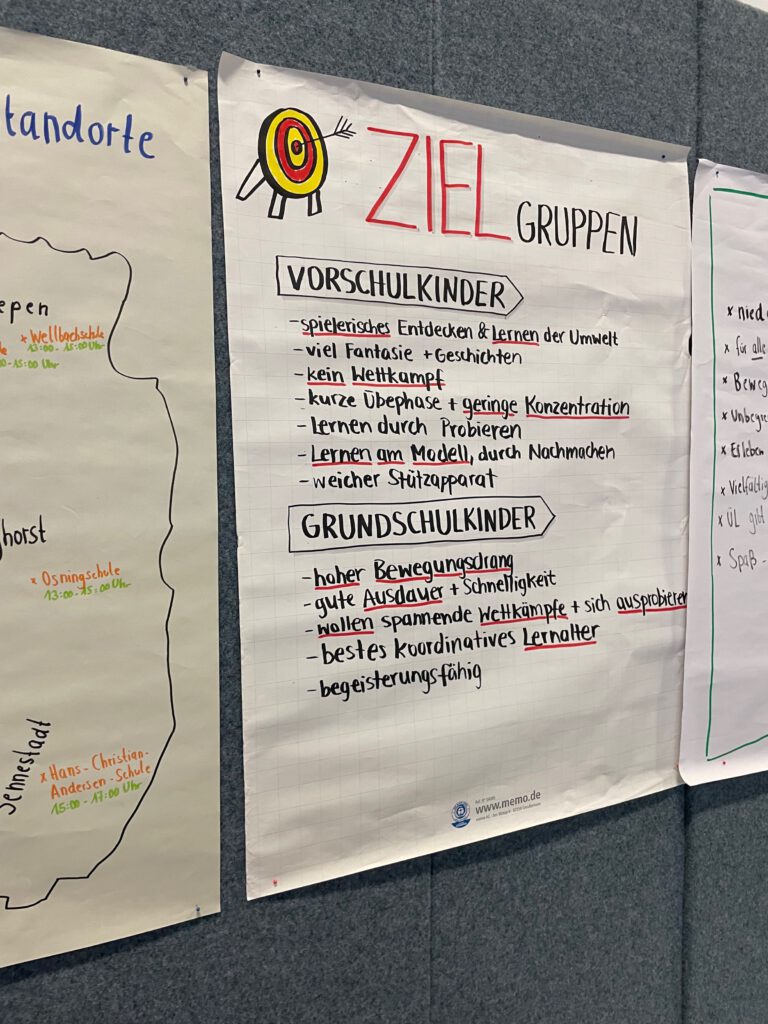 tandorte
epen
+ Wellbachschule
13:00 - 15:00 Uhr
-15:00 Uhr
horst
x Osningschule
13:00 - 15:00 Uhr
Sennestadt
x Hans-Christian-
Andersen-Schule
15:00 - 17:00 Uhr
ZIEL GRUPPEN
VORSCHULKINDER
- spielerisches Entdecken & Lernen der Umwelt
- viel Fantasie + Geschichten
- kein Wettkampf
- kurze Übephase + geringe Konzentration
- Lernen durch Probieren
- Lernen am Modell, durch Nachmachen
- weicher Stützapparat
GRUNDSCHULKINDER
- hoher Bewegungsdrang
- gute Ausdauer + Schnelligkeit
- wollen spannende Wettkämpfe + sich ausprobieren
- bestes koordinatives Lernalter
- begeisterungsfähig
www.memo.de
x nied
x für alle
x Beweg
x Unbegre
x Erleben
x Vielfältig
x ÜL gibt
x Spaß -